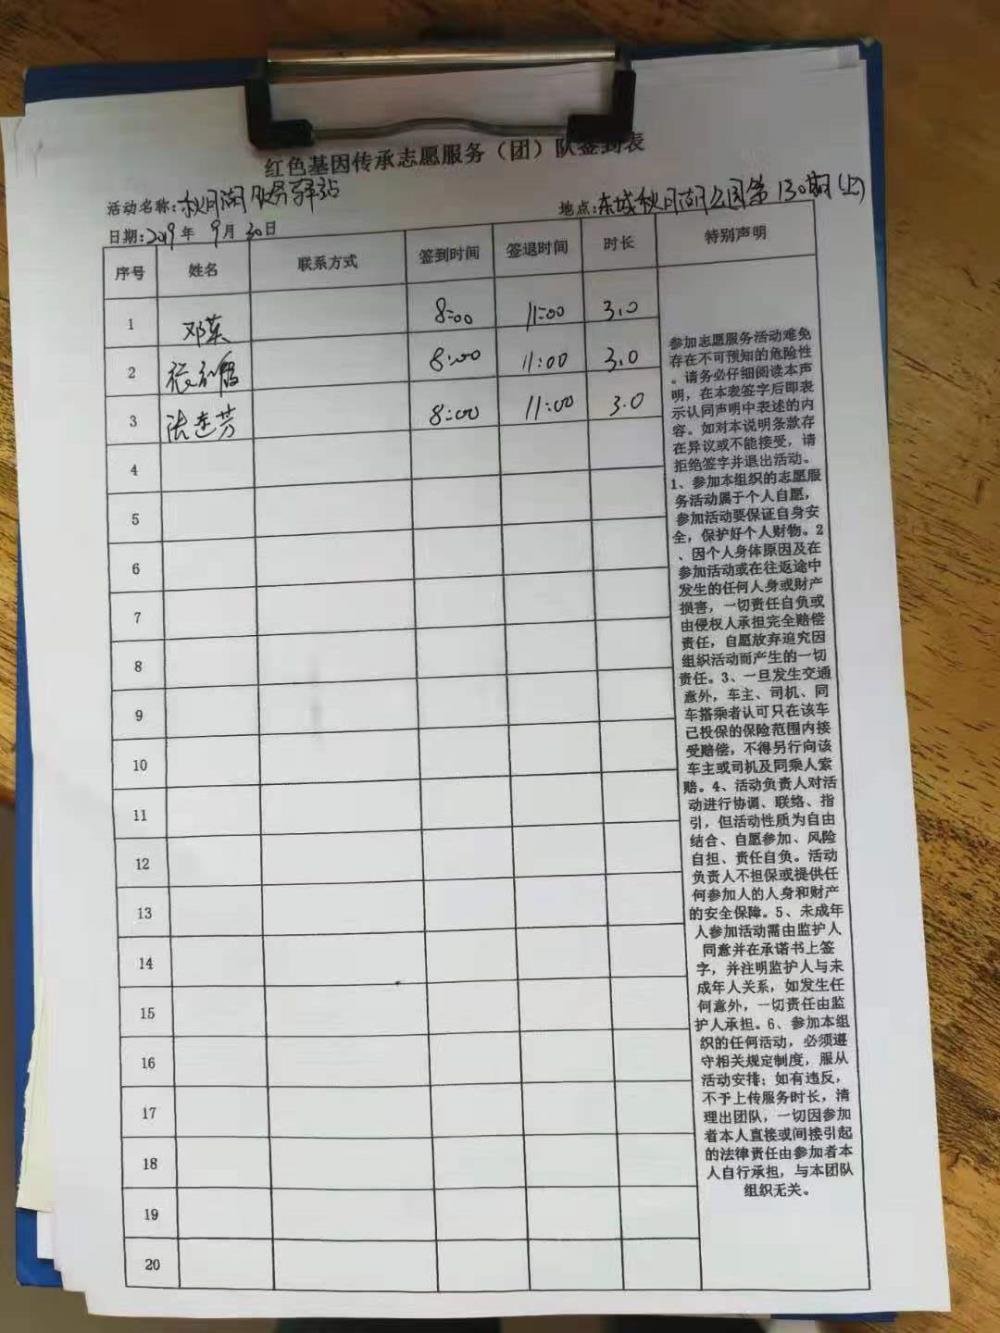 红色基因传承志愿服务（团）队签到表
活动名称：秋月湖服务驿站 地点：东城秋月湖公园第130期(上)
日期：2019年 9月 30日
序号 姓名 联系方式 签到时间 签退时间 时长 特别声明
1 邓英 8:00 11:00 3.0
2 8:00 11:00 3.0
3 8:00 11:00 3.0
4
5
6
7
8
9
10
11
12
13
14
15
16
17
18
19
20
参加志愿服务活动难免
存在不可预知的危险性
。请务必仔细阅读本声
明，在本表签字后即表
示认同声明中表述的内
容。如对本说明条款存
在异议或不能接受，请
拒绝签字并退出活动。
1、参加本组织的志愿服
务活动属于个人自愿，
参加活动要保证自身安
全，保护好个人财物。2
、因个人身体原因及在
参加活动或在往返途中
发生的任何人身或财产
损害，一切责任自负或
由侵权人承担完全赔偿
责任，自愿放弃追究因
组织活动而产生的一切
责任。3、一旦发生交通
意外，车主、司机、同
车搭乘者认可只在该车
已投保的保险范围内接
受赔偿，不得另行向该
车主或司机及同乘人索
赔。4、活动负责人对活
动进行协调、联络、指
引，但活动性质为自由
结合、自愿参加、风险
自担、责任自负。活动
负责人不担保或提供任
何参加人的人身和财产
的安全保障。5、未成年
人参加活动需由监护人
同意并在承诺书上签
字，并注明监护人与未
成年人关系，如发生任
何意外，一切责任由监
护人承担。6、参加本组
织的任何活动，必须遵
守相关规定制度，服从
活动安排；如有违反，
不予上传服务时长，清
理出团队，一切因参加
者本人直接或间接引起
的法律责任由参加者本
人自行承担，与本团队
组织无关。